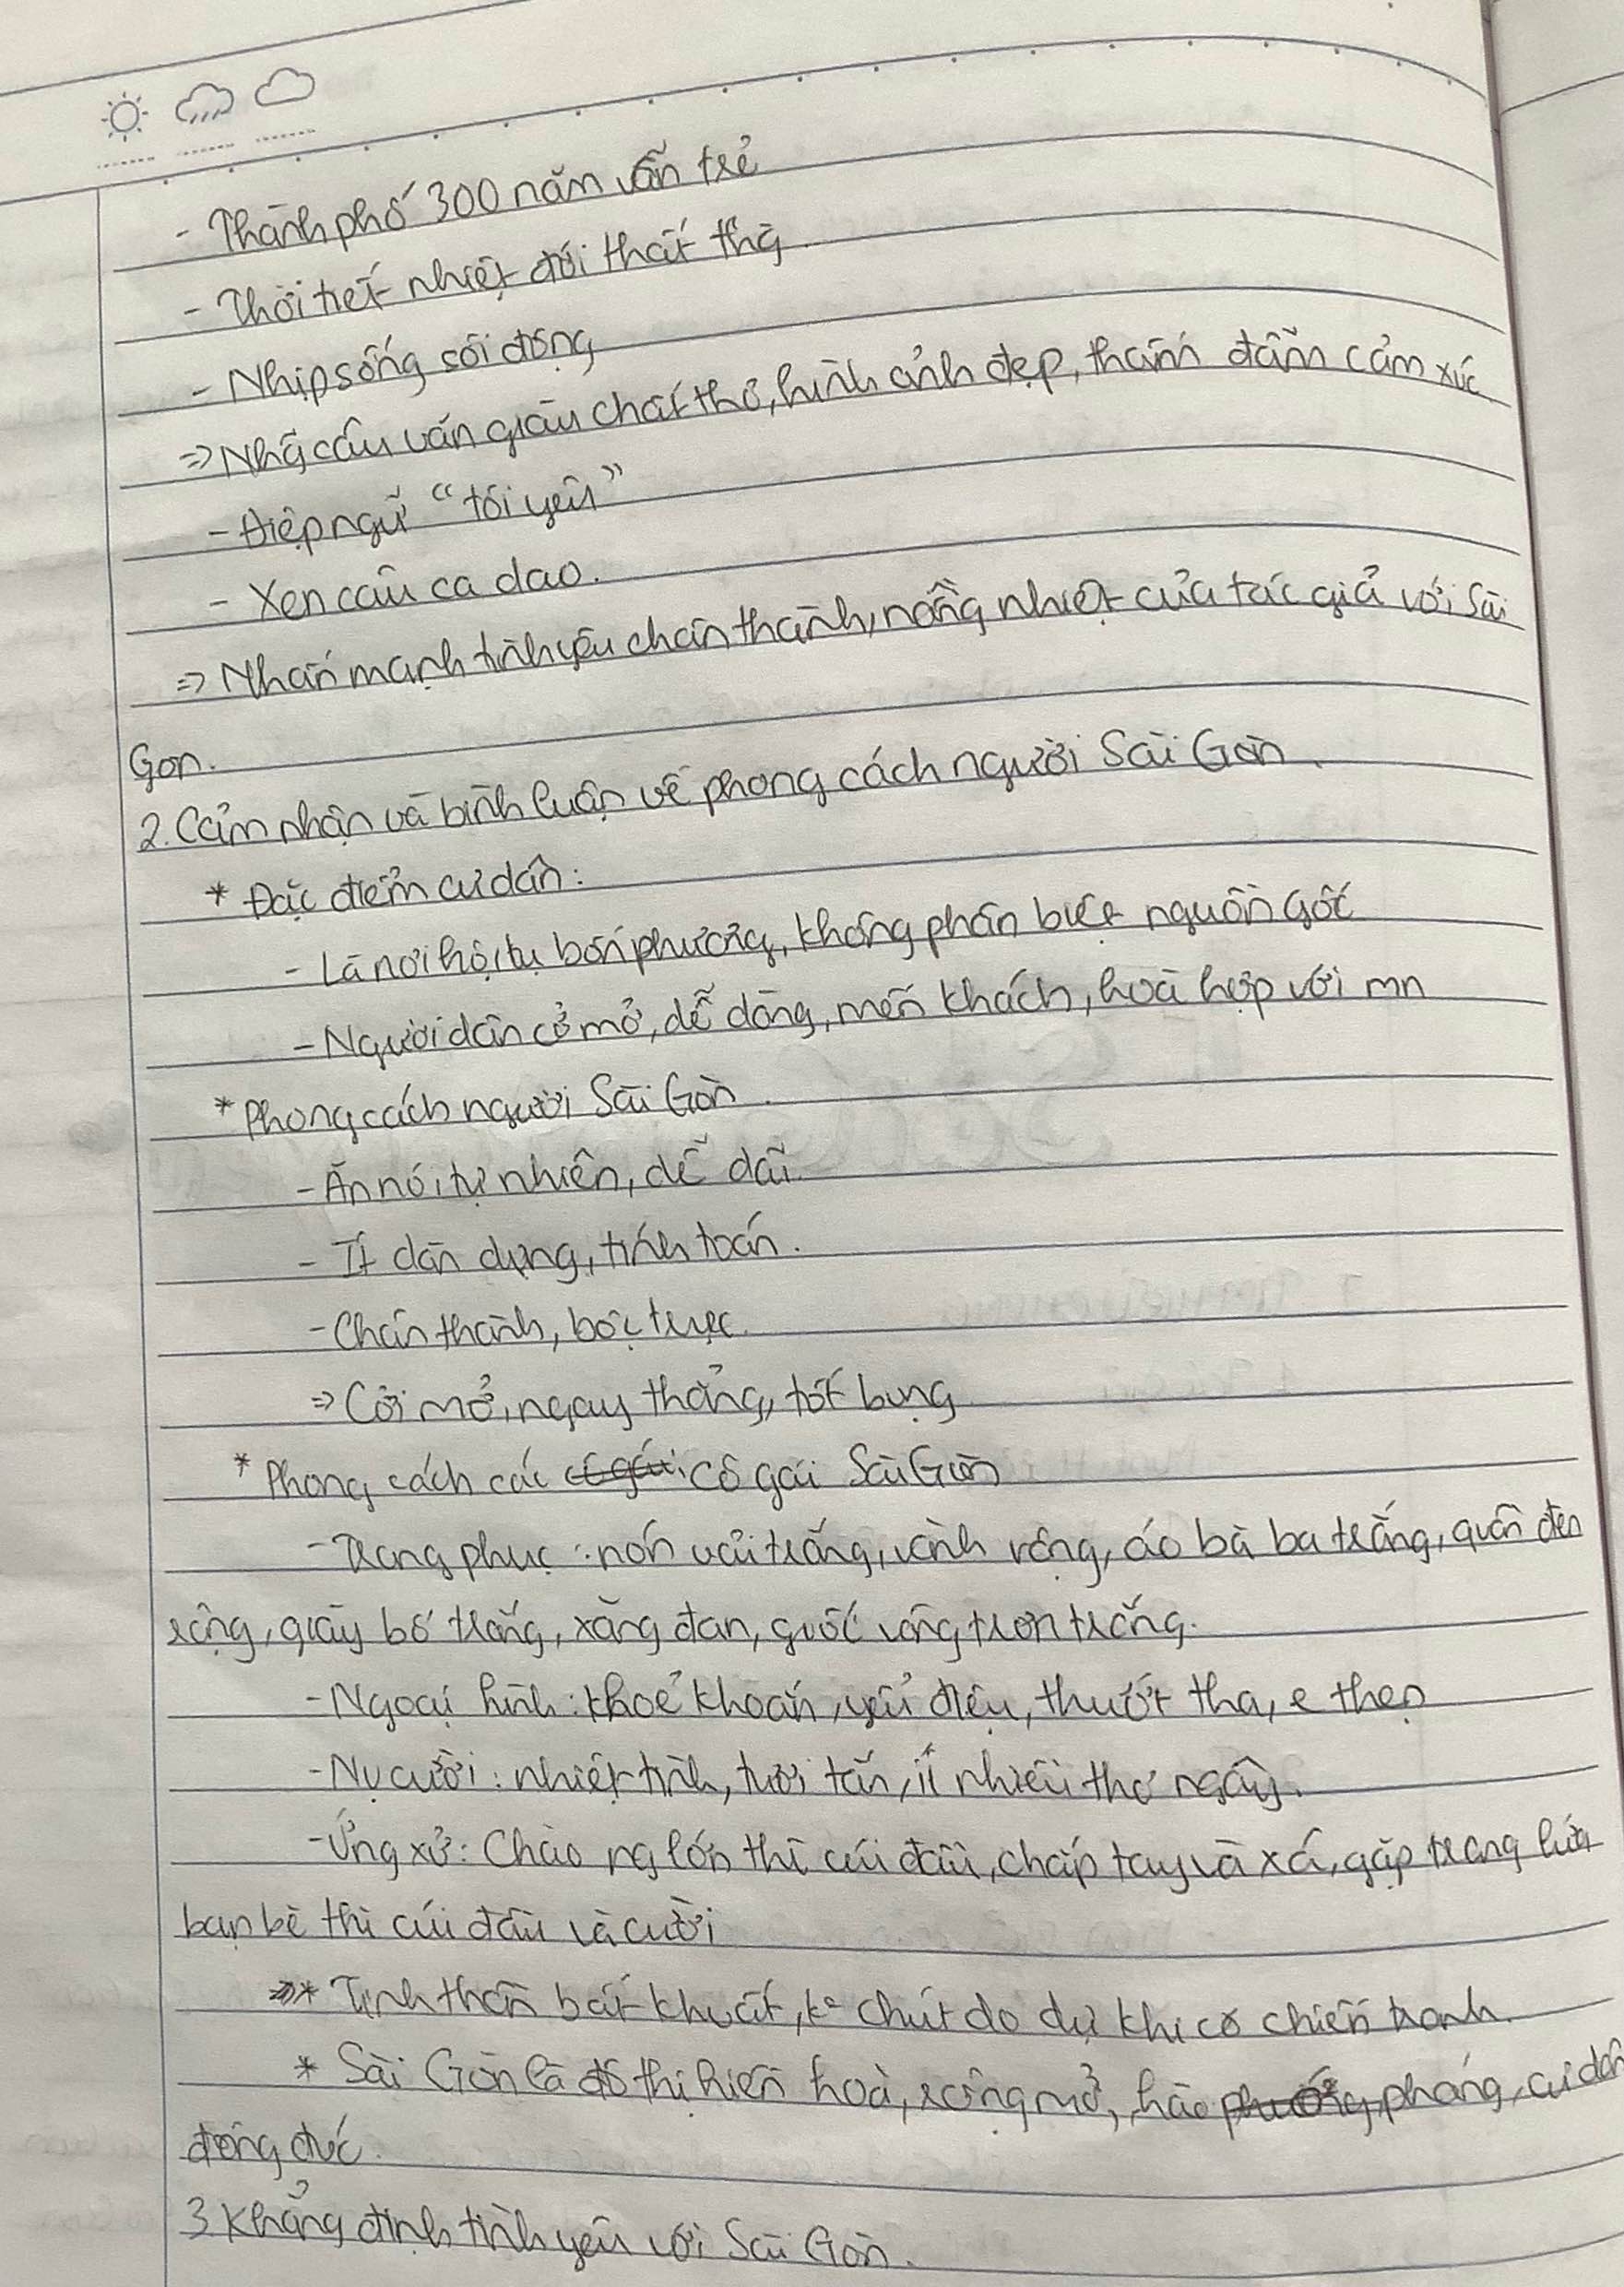 - Thành phố 300 năm vẫn trẻ
- Thời tiết nhiệt đới thất thg
- Nhịp sống sôi động
=> Nhg câu văn giàu chất thơ, hình ảnh đẹp, thấm đẫm cảm xúc
- Điệp ngữ "tôi yêu"
- Xen câu ca dao.
=> Nhấn mạnh tình yêu chân thành, nồng nhiệt của tác giả với Sài
Gòn.
2. Cảm nhận và bình luận về phong cách người Sài Gòn.
* Đặc điểm cư dân:
- Là nơi hội tụ bốn phương, không phân biệt nguồn gốc
- Người dân cở mở, dễ dàng, mến khách, hoà hợp với mn
* Phong cách người Sài Gòn.
- Ăn nói tự nhiên, dễ dãi.
- Ít dàn dựng, tính toán.
- Chân thành, bộc trực.
=> Cởi mở, ngay thẳng, tốt bụng
* Phong cách các cô gái Sài Gòn
- Trang phục: nón vải trắng, vành rộng, áo bà ba trắng, quần đen
rộng, giày bố trắng, xăng đan, guốc vông trơn trắng.
- Ngoại hình: khoẻ khoắn, yểu điệu, thướt tha, e thẹn
- Nụ cười: nhiệt tình, tươi tắn, ít nhiều thơ ngây.
- Ứng xử: Chào ng lớn thì cúi đầu, chắp tay và xá, gặp trang lứa
bạn bè thì cúi đầu và cười
=>* Tinh thần bất khuất, k° chút do dự khi có chiến tranh.
* Sài Gòn là đô thị hiền hoà, rộng mở, hào phóng, cư dân
đông đúc.
3 Khẳng định tình yêu với Sài Gòn.